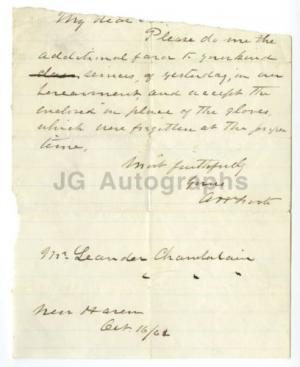 My dear
Please do me the
additional favor to your kind
services, of yesterday, in our
bereavement, and accept the
enclosed in place of the gloves,
which were forgotten at the proper
time.
Most faithfully
Yours
JG Autographs
Mr Leander Chamberlain
New Haven
Oct 16/61